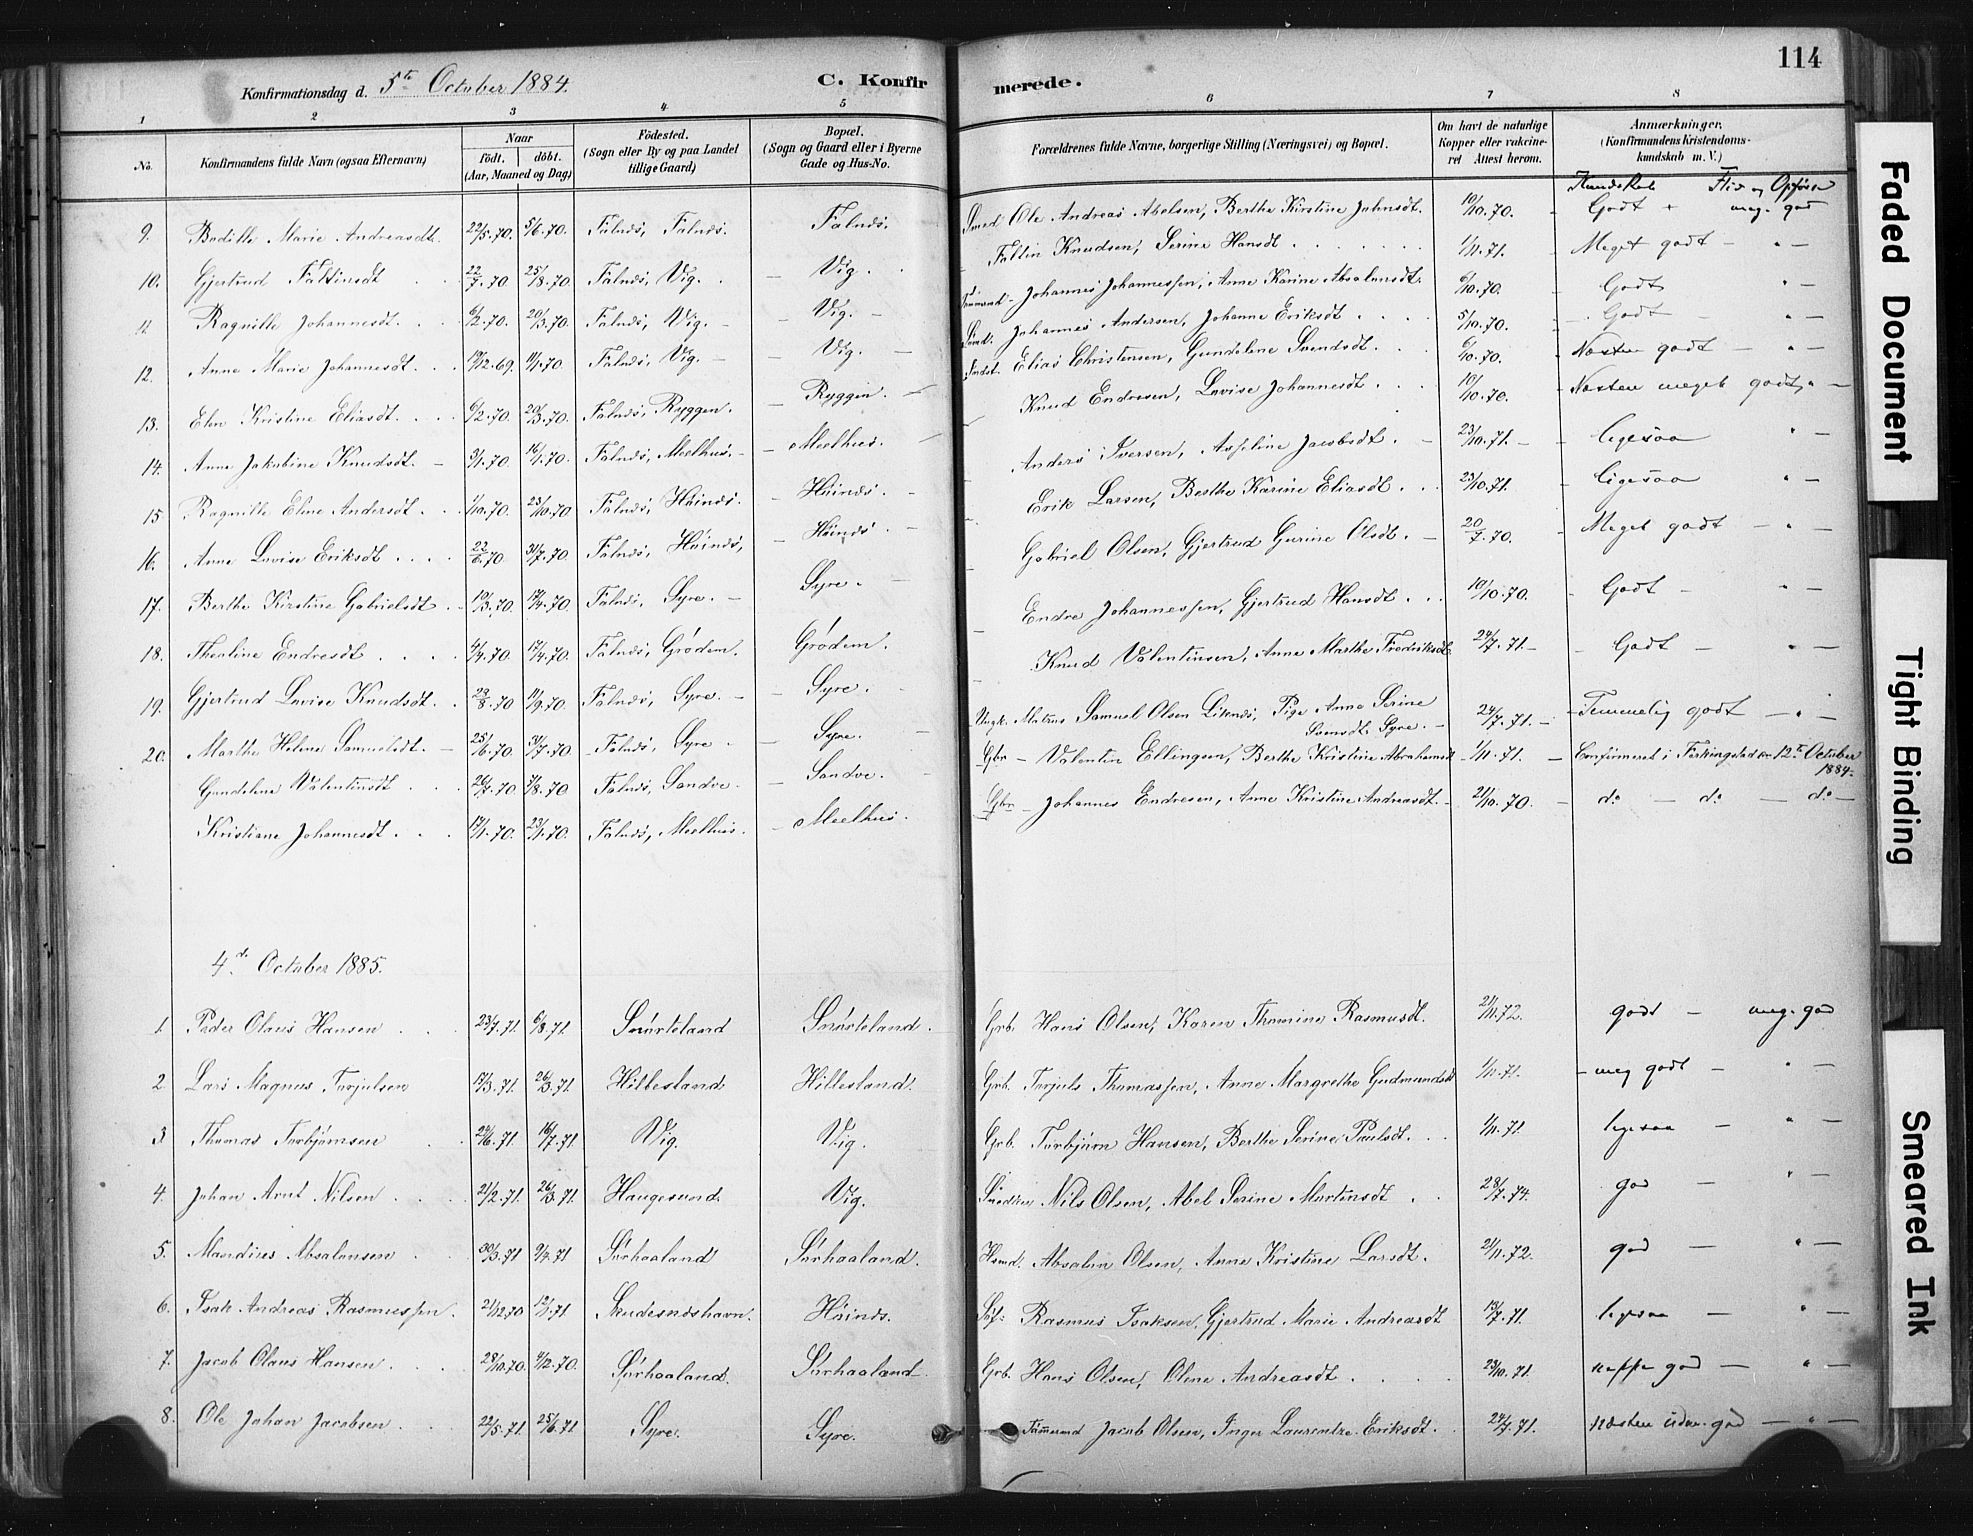 114
Konfirmationsdag d. 5te October 1884.
C. Konfirmerede.
1 2 3 4 5 6 7 8
No.
Konfirmandens fulde Navn (ogsaa Efternavn)
Naar
födt. döbt.
(Aar, Maaned og Dag)
Födested.
(Sogn eller By og paa Landet
tillige Gaard)
Bopæl.
(Sogn og Gaard eller i Byerne
Gade og Hus-No.
Forældrenes fulde Navne, borgerlige Stilling (Næringsvei) og Bopæl.
Om havt de naturlige
Kopper eller vakcine-
ret Attest herom.
Anmærkninger.
(Konfirmandens Kristendoms-
kundskab m. V.)
Kundskab Flid og Opførsel
9. Bodille Marie Andreasdt. 22/5.70. 5/6.70. Falnæs, Falnæs. Falnæs. Smed Ole Andreas Abelsen, Berthe Kirstine Johnsdt. 10/10.70. Godt + meg. god
10. Gjertrud Faltinsdt 22/7.70 25/8.70. Falnæs, Vig. Vig. Faltin Knudsen, Serine Hansdt 1/11.71. Meget godt " –
11. Ragnille Johannesdt. 6/2.70. 20/3.70. Falnæs, Vig. Vig. Johannes Johannessen, Anne Karine Absalonsdt. 6/10.70. Godt " –
12. Anne Marie Johannesdt. 19/12.69. 11/1.70. Falnæs, Vig. Vig. Johannes Andersen, Johanne Eriksdt 5/10.70. Godt " –
13. Elen Kristine Eliasdt. 6/2.70. 20/3.70. Falnæs, Ryggen. Ryggen. Elias Christensen, Gundeline Svendsdt. 6/10.70. Næsten godt " –
14. Anne Jakobine Knudsdt. 3/1.70. 16/1.70. Falnæs, Meelhus. Meelhus. Knud Endresen, Lovise Johannesdt 10/10.70. Næsten meget godt " –
15 Ragnille Eline Andersdt 1/10.70. 23/10.70. Falnæs, Höinæs. Höinæs. Anders Iversen, Asseline Jacobsdt. 23/10.71. ligesaa " –
16. Anne Lovise Eriksdt 22/6.70 31/7.70. Falnæs, Höinæs, Höinæs. Erik Larsen, Berthe Karine Eliasdt 23/10.71. ligesaa " –
17. Berthe Kirstine Gabrielsdt. 19/3.70. 17/4.70. Falnæs, Syre. Syre. Gabriel Olsen, Gjertrud Gurine Olsdt. 20/7.70. Meget godt " –
18. Thealine Endresdt 4/4.70. 17/4.70. Falnæs, Grödem. Grödem. Endre Johannessen, Gjertrud Hansdt. 10/10.70. Godt " –
19. Gjertrud Lovise Knudsdt. 29/8.70 11/9.70. Falnæs, Syre. Syre. Knud Valentinsen, Anne Marthe Fredriksdt. 24/7.71. Godt " –
20. Marthe Helene Samuelsdt. 25/6.70. 31/7.70 Falnæs, Syre. Syre. Ungk. Matros Samuel Olsen Liknæs, Pige Anne Serine
Svensdt. Syre. 24/7.71. Temmelig godt " –
Gundeline Valentinsdt 26/7.70. 3/8.70. Falnæs, Sandve. Sandve. Gbr. Valentin Ellingsen, Berthe Kristine Abrahamsdt 1/11.71. Confirmeret i Ferkingstad den 12te October
1884.
Kristiane Johannesdt. 17/1.70. 23/1.70. Falnæs, Meelhus. Meelhus. Gbr. Johannes Endresen, Anne Kristine Andreasdt. 21/10.70. do – do – do –
4de October 1885.
1. Peder Olaus Hansen 23/7.71. 6/8.71. Snörteland Snörteland. Grb. Hans Olsen, Karen Thomine Rasmusdt. 21/11.72. godt – meg. god
2. Lars Magnus Torjulsen 15/3.71. 26/3.71 Hillesland Hillesland. Grb. Torjuls Thomassen, Anne Margrethe Gudmundsdt 1/11.71. meg godt – " –
3. Thomas Torbjörnsen 24/6.71. 16/7.71 Vig. Vig. Grb. Torbjörn Hansen, Berthe Serine Paulsdt. 1/11.71 ligesaa – " –
4. Johan Arnt Nilsen 21/2.71. 26/3.71. Haugesund. Vig. Snedker Nils Olsen, Abel Serine Martinsdt 28/7.74. god – " –
5. Mandius Absalonsen 30/3.71 9/4.71 Sörhaaland Sörhaaland. Husmd. Absalon Olsen, Anne Kristine Larsdt. 21/11.72. god – " –
6. Isak Andreas Rasmussen. 21/12.70 12/1.71 Skudesnæshavn. Höinæs. Söf. Rasmus Isaksen, Gjertrud Marie Andreasdt 13/7.71. ligesaa – " –
7. Jacob Olaus Hansen. 28/10.70. 4/12.70. Sörhaaland. Sörhaaland. Grb. Hans Olsen, Oline Andreasdt 23/10.71. neppe god – " –
8. Ole Johan Jacobsen 22/5.71. 25/6.71 Syre. Syre. Tömmermd Jacob Olsen, Inger Laurentze Eriksdt. 24/7.71. Næsten udm. god – " –
Faded Document
Tight Binding
Smeared Ink